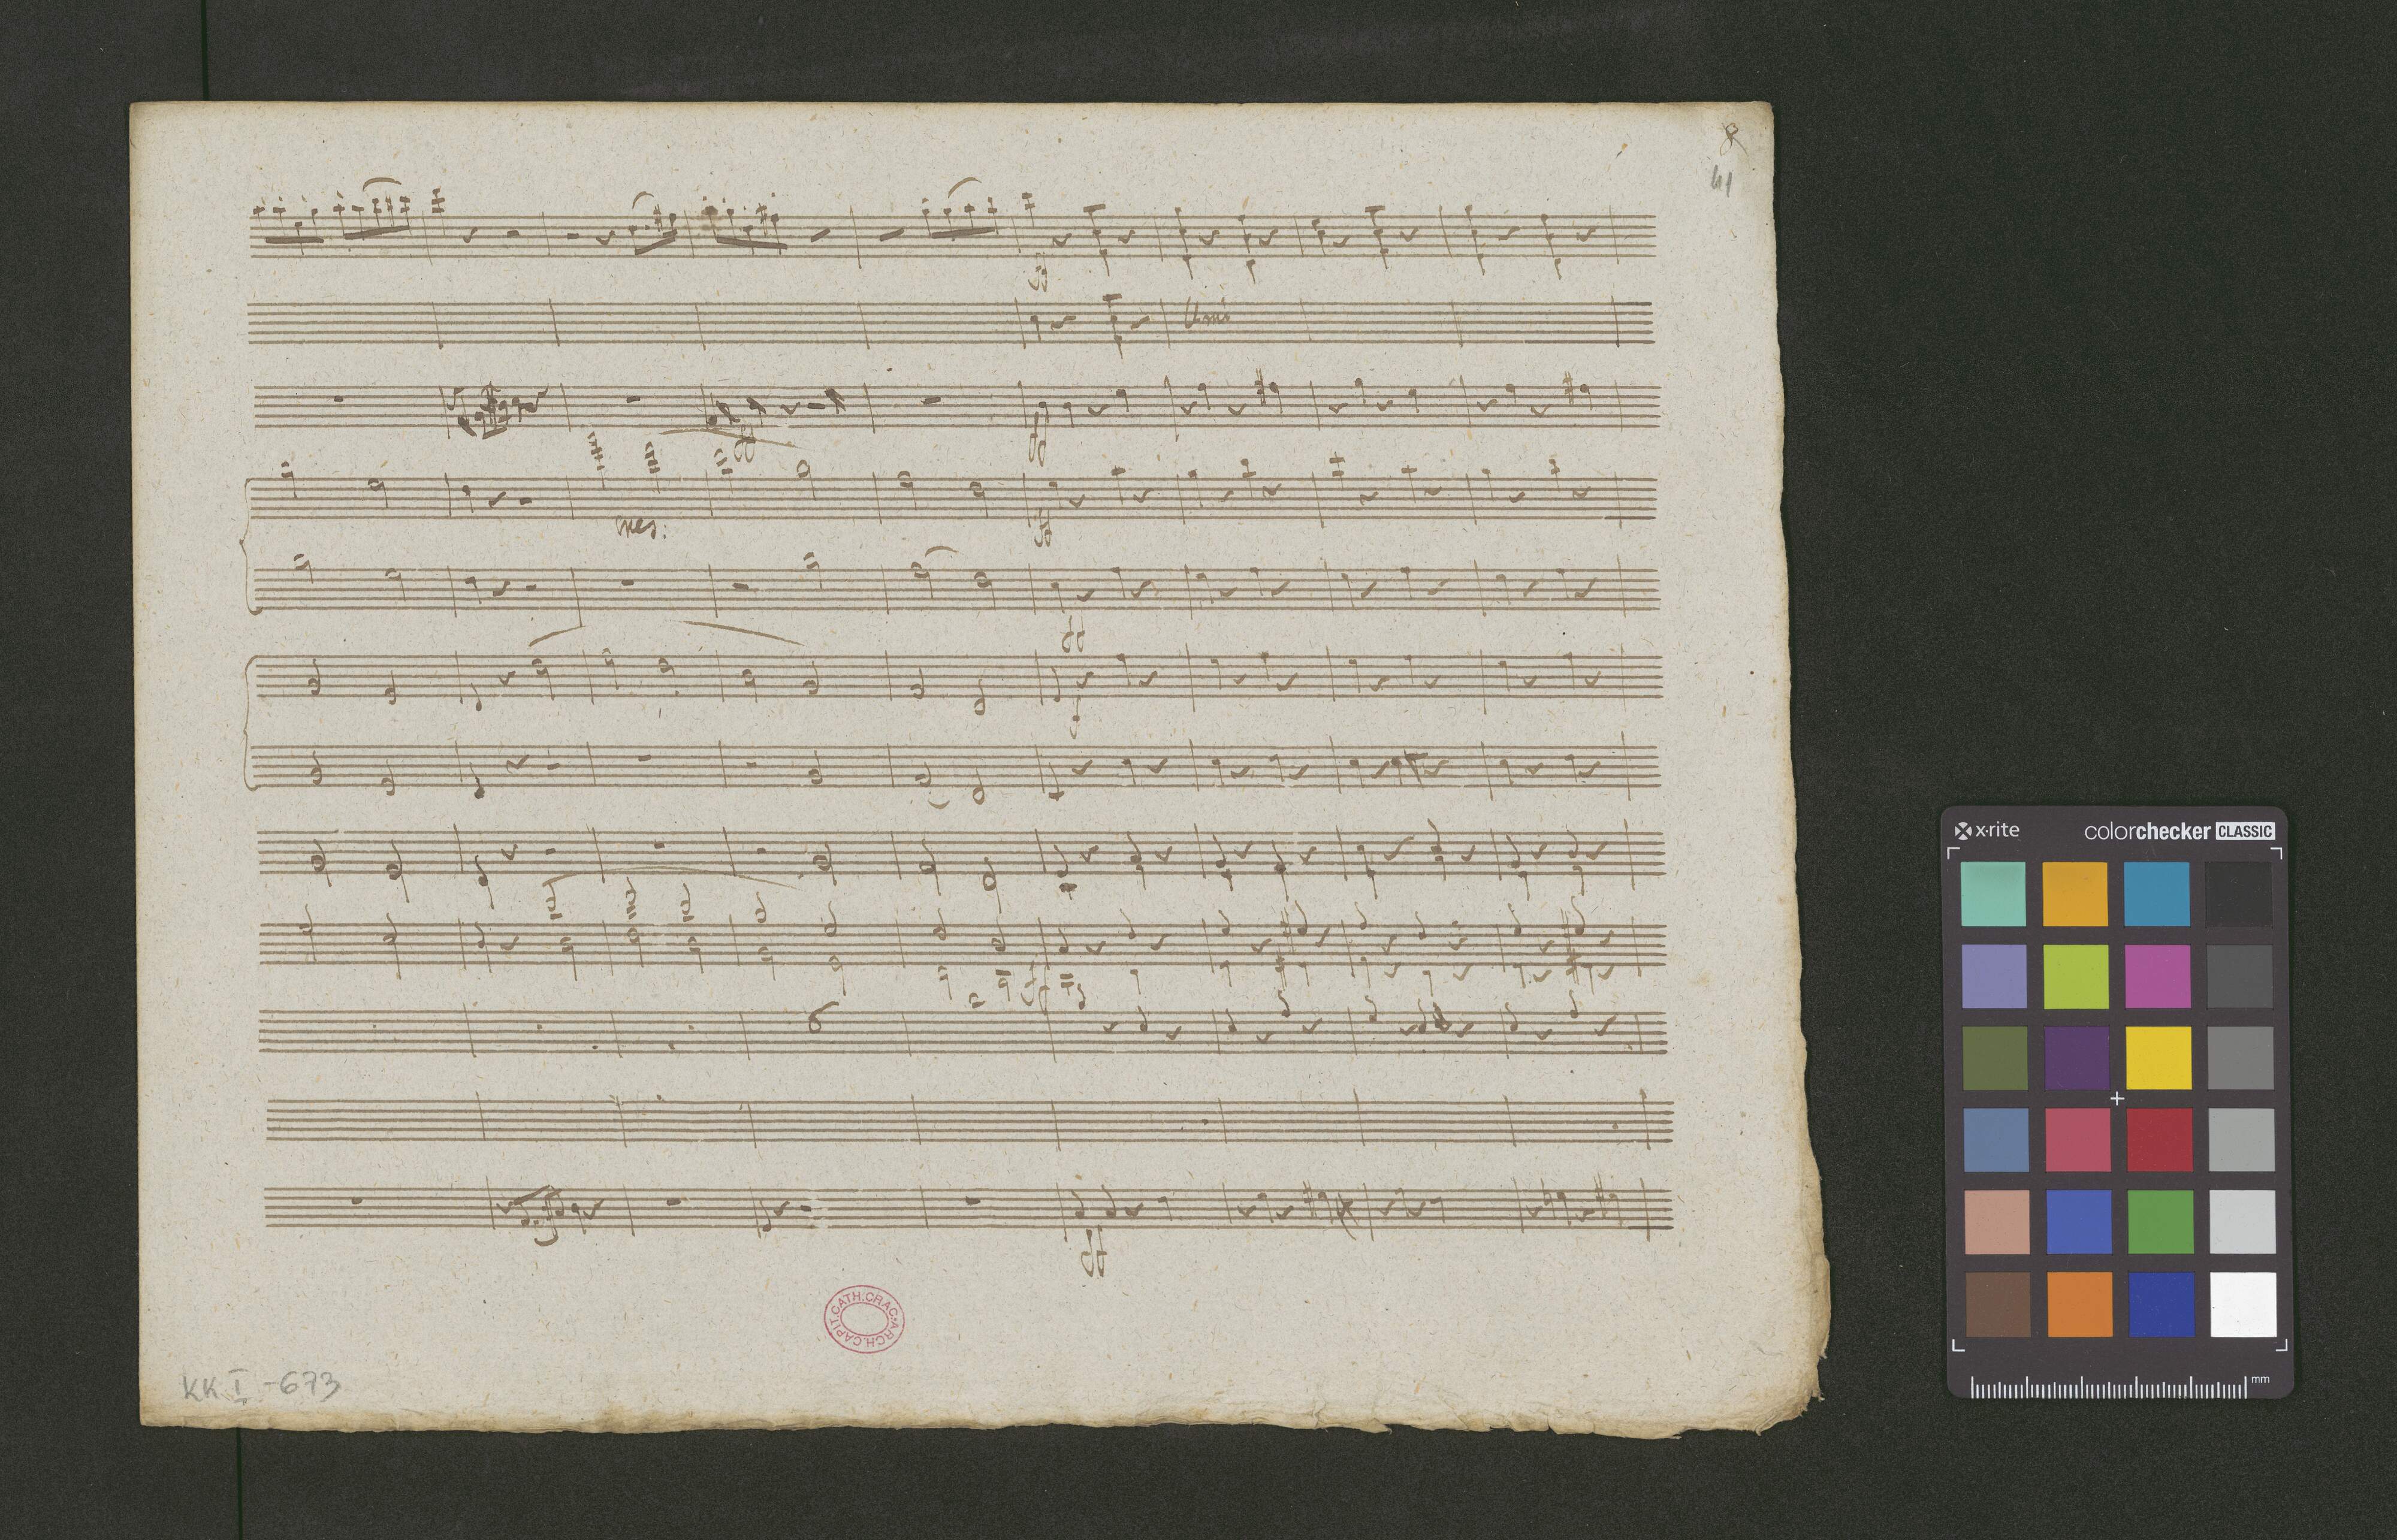 8
41
ff
Unis
ff
ff
mes:
ff
ff
f
ff
6
ff
CATH.CRAC·ARCH.CAPIT.
KK I -673
x·rite
colorchecker CLASSIC
mm